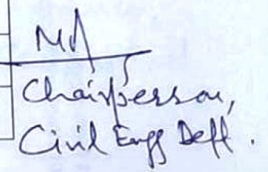 Chairperson,
Civil Engg Deptt.